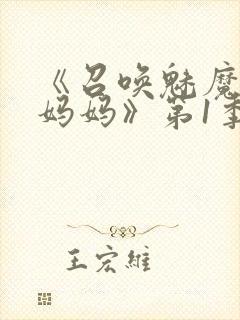 《召唤魅魔
妈妈》第1季
王宏维